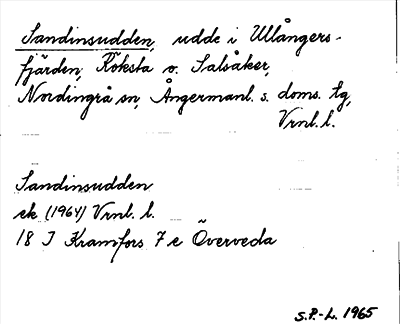 Sandinsudden, udde i Ullångers-
fjärden, Röksta o. Salsåker,
Nordingrå sn, Ångermanl. s. doms. tg,
Vrnl. l.
Sandinsudden
ek (1964) Vrnl. l.
18 J Kramfors 7 e Överveda
S.P.-L. 1965